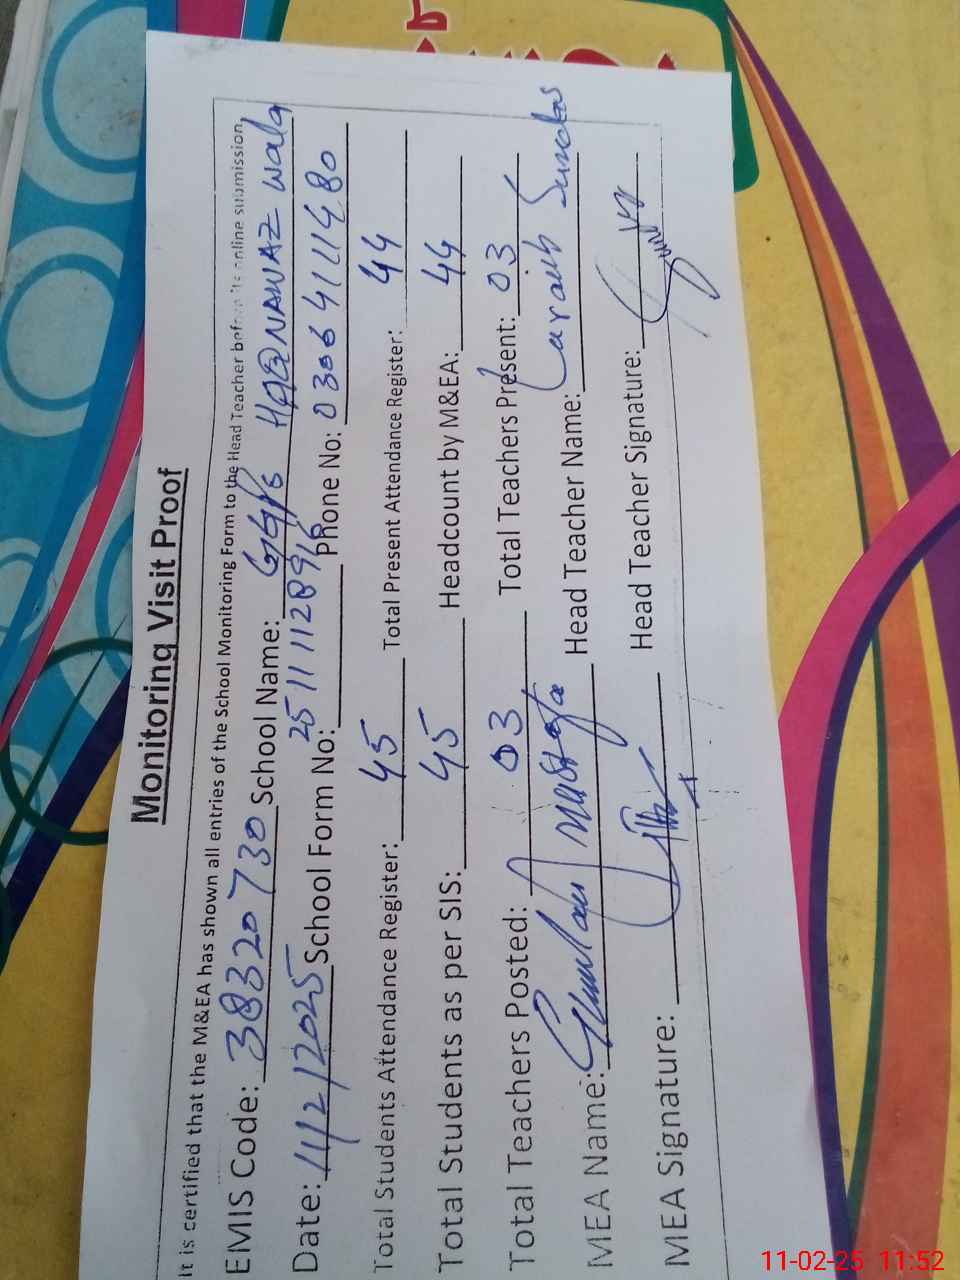 Monitoring Visit Proof
It is certified that the M&EA has shown all entries of the School Monitoring Form to the Head Teacher before its online submission.
EMIS Code: 38320730 School Name: GGPS HAQ NAWAZ wala
Date: 11/2/2025 School Form No: Phone No: 03064111480
Total Students Attendance Register: 45 Total Present Attendance Register: 44
Total Students as per SIS: 45 Headcount by M&EA: 44
Total Teachers Posted: 03 Total Teachers Present: 03
MEA Name: Ghulam Mustafa Head Teacher Name:
MEA Signature: Head Teacher Signature:
11-02-25 11:52